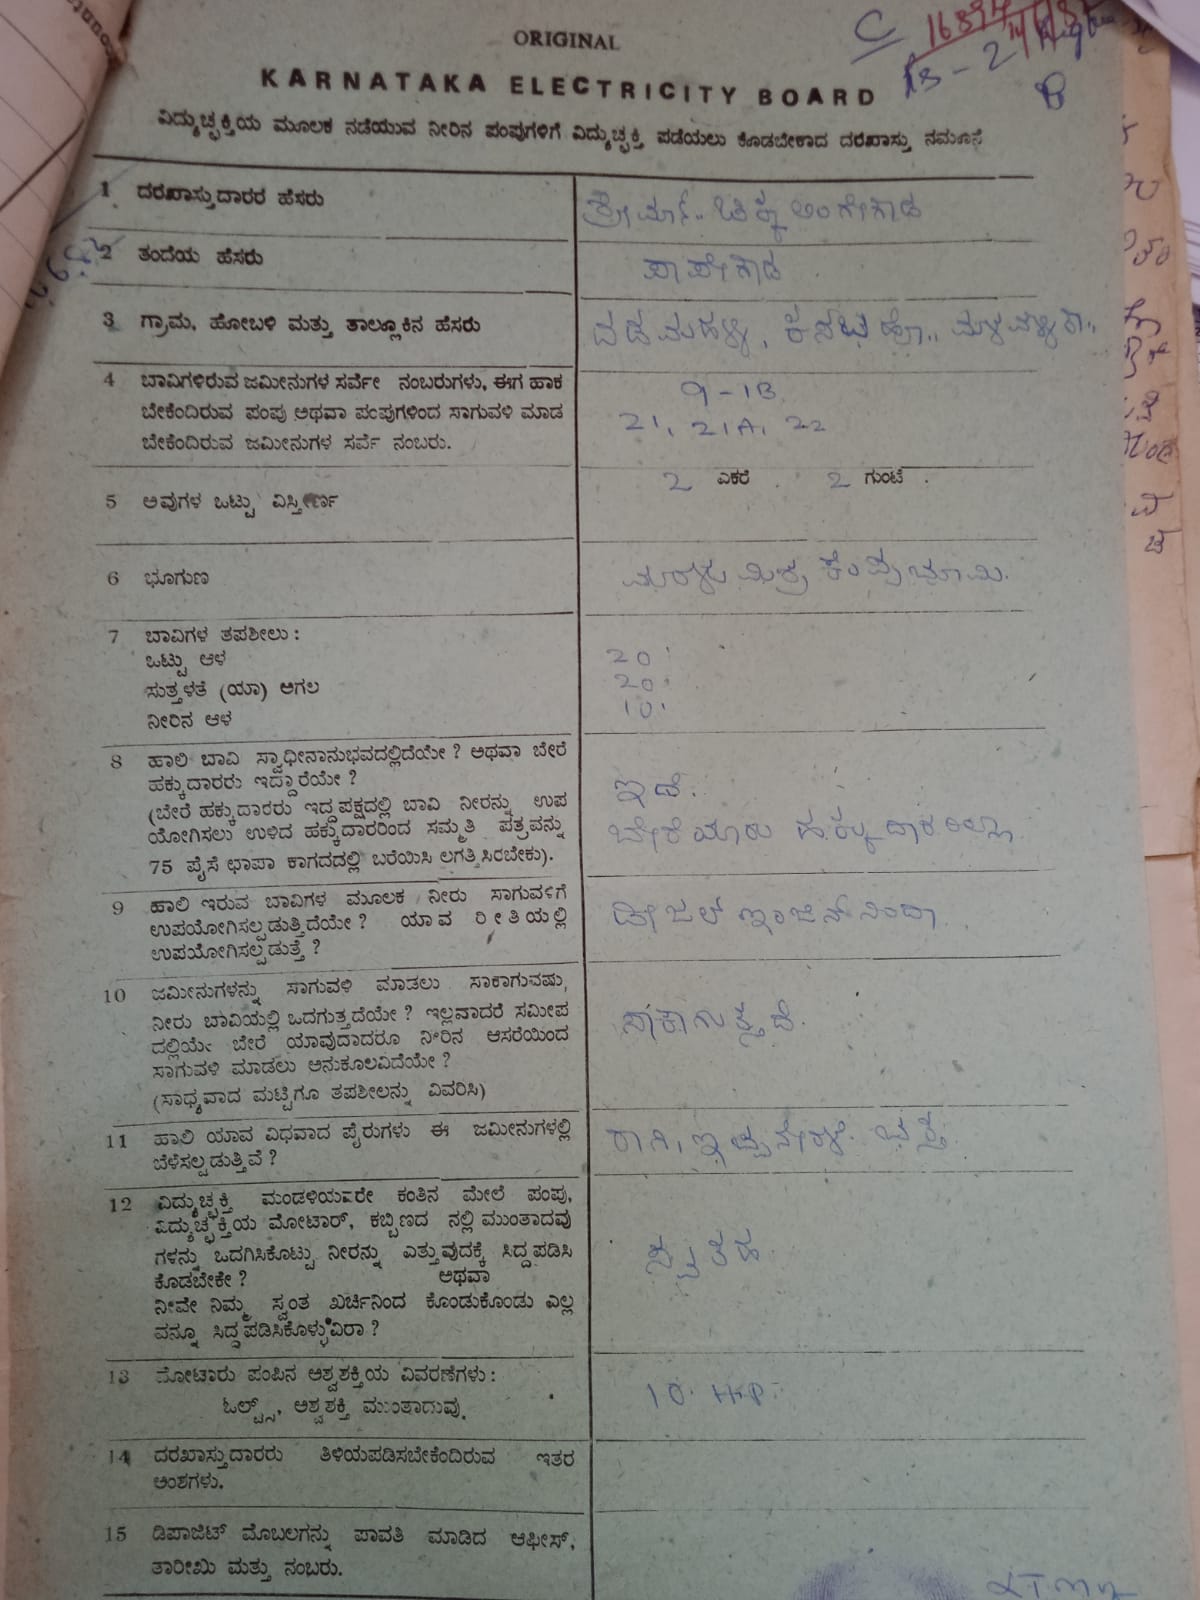 ORIGINAL
KARNATAKA ELECTRICITY BOARD
C
ವಿದ್ಯುಚ್ಛಕ್ತಿಯ ಮೂಲಕ ನಡೆಯುವ ನೀರಿನ ಪಂಪುಗಳಿಗೆ ವಿದ್ಯುಚ್ಛಕ್ತಿ ಪಡೆಯಲು ಕೊಡಬೇಕಾದ ದರಖಾಸ್ತು ನಮೂನೆ
1 ದರಖಾಸ್ತುದಾರರ ಹೆಸರು
2 ತಂದೆಯ ಹೆಸರು
3 ಗ್ರಾಮ, ಹೋಬಳಿ ಮತ್ತು ತಾಲ್ಲೂಕಿನ ಹೆಸರು
4 ಬಾವಿಗಳಿರುವ ಜಮೀನುಗಳ ಸರ್ವೇ ನಂಬರುಗಳು, ಈಗ ಹಾಕ 9-1B
ಬೇಕೆಂದಿರುವ ಪಂಪು ಅಥವಾ ಪಂಪುಗಳಿಂದ ಸಾಗುವಳಿ ಮಾಡ 21, 21A, 22
ಬೇಕೆಂದಿರುವ ಜಮೀನುಗಳ ಸರ್ವೆ ನಂಬರು.
5 ಅವುಗಳ ಒಟ್ಟು ವಿಸ್ತೀರ್ಣ 2 ಎಕರೆ . 2 ಗುಂಟೆ .
6 ಭೂಗುಣ ಮರಳು ಮಿಶ್ರ ಕೆಂಪು ಭೂಮಿ.
7 ಬಾವಿಗಳ ತಪಶೀಲು :
ಒಟ್ಟು ಆಳ 20'
ಸುತ್ತಳತೆ (ಯಾ) ಅಗಲ 20'
ನೀರಿನ ಆಳ 10'
8 ಹಾಲಿ ಬಾವಿ ಸ್ವಾಧೀನಾನುಭವದಲ್ಲಿದೆಯೇ ? ಅಥವಾ ಬೇರೆ
ಹಕ್ಕುದಾರರು ಇದ್ದಾರೆಯೇ ? ಇದೆ.
(ಬೇರೆ ಹಕ್ಕುದಾರರು ಇದ್ದ ಪಕ್ಷದಲ್ಲಿ ಬಾವಿ ನೀರನ್ನು ಉಪ
ಯೋಗಿಸಲು ಉಳಿದ ಹಕ್ಕುದಾರರಿಂದ ಸಮ್ಮತಿ ಪತ್ರವನ್ನು ಬೇರೆ ಯಾರು ಹಕ್ಕುದಾರರಿಲ್ಲಾ
75 ಪೈಸೆ ಛಾಪಾ ಕಾಗದದಲ್ಲಿ ಬರೆಯಿಸಿ ಲಗತ್ತಿಸಿರಬೇಕು).
9 ಹಾಲಿ ಇರುವ ಬಾವಿಗಳ ಮೂಲಕ ನೀರು ಸಾಗುವಳಿಗೆ
ಉಪಯೋಗಿಸಲ್ಪಡುತ್ತಿದೆಯೇ ? ಯಾವ ರೀತಿಯಲ್ಲಿ ಡೀಜಲ್ ಇಂಜಿನ್ ನಿಂದಾ
ಉಪಯೋಗಿಸಲ್ಪಡುತ್ತೆ ?
10 ಜಮೀನುಗಳನ್ನು ಸಾಗುವಳಿ ಮಾಡಲು ಸಾಕಾಗುವಷ್ಟು,
ನೀರು ಬಾವಿಯಲ್ಲಿ ಒದಗುತ್ತದೆಯೇ ? ಇಲ್ಲವಾದರೆ ಸಮೀಪ ಸಾಕಾಗುತ್ತದೆ.
ದಲ್ಲಿಯೇ ಬೇರೆ ಯಾವುದಾದರೂ ನೀರಿನ ಆಸರೆಯಿಂದ
ಸಾಗುವಳಿ ಮಾಡಲು ಅನುಕೂಲವಿದೆಯೇ ?
(ಸಾಧ್ಯವಾದ ಮಟ್ಟಿಗೂ ತಪಶೀಲನ್ನು ವಿವರಿಸಿ)
11 ಹಾಲಿ ಯಾವ ವಿಧವಾದ ಪೈರುಗಳು ಈ ಜಮೀನುಗಳಲ್ಲಿ ರಾಗಿ, ಭತ್ತ.
ಬೆಳೆಸಲ್ಪಡುತ್ತಿವೆ ?
12 ವಿದ್ಯುಚ್ಛಕ್ತಿ ಮಂಡಳಿಯವರೇ ಕಂತಿನ ಮೇಲೆ ಪಂಪು,
ವಿದ್ಯುಚ್ಛಕ್ತಿಯ ಮೋಟಾರ್, ಕಬ್ಬಿಣದ ನಲ್ಲಿ ಮುಂತಾದವು
ಗಳನ್ನು ಒದಗಿಸಿಕೊಟ್ಟು ನೀರನ್ನು ಎತ್ತುವುದಕ್ಕೆ ಸಿದ್ದಪಡಿಸಿ ಸ್ವತಹ
ಕೊಡಬೇಕೇ ? ಅಥವಾ
ನೀವೇ ನಿಮ್ಮ ಸ್ವಂತ ಖರ್ಚಿನಿಂದ ಕೊಂಡುಕೊಂಡು ಎಲ್ಲ
ವನ್ನೂ ಸಿದ್ದಪಡಿಸಿಕೊಳ್ಳುವಿರಾ ?
13 ಮೋಟಾರು ಪಂಪಿನ ಅಶ್ವಶಕ್ತಿಯ ವಿವರಣೆಗಳು : 10. H-P.
ಓಲ್ಟ್ಸ್, ಅಶ್ವಶಕ್ತಿ ಮುಂತಾದುವು.
14 ದರಖಾಸ್ತುದಾರರು ತಿಳಿಯಪಡಿಸಬೇಕೆಂದಿರುವ ಇತರ
ಅಂಶಗಳು.
15 ಡಿಪಾಜಿಟ್ ಮೊಬಲಗನ್ನು ಪಾವತಿ ಮಾಡಿದ ಆಫೀಸ್,
ತಾರೀಖು ಮತ್ತು ನಂಬರು.